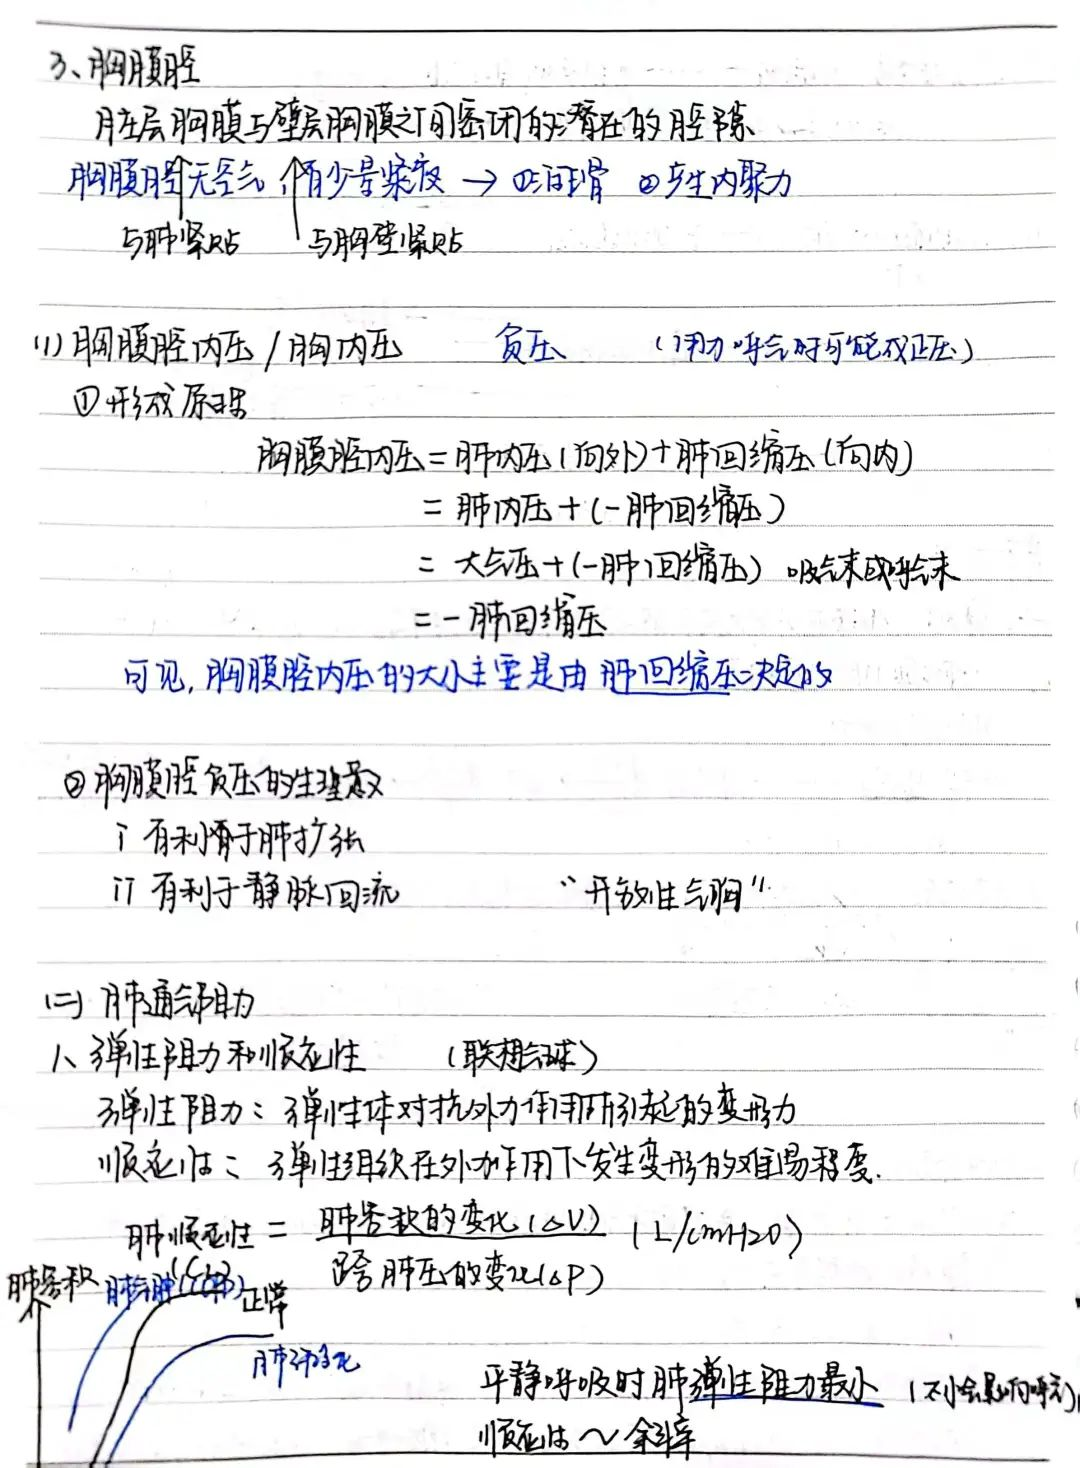 3、胸膜腔
脏层胸膜与壁层胸膜之间密闭的潜在的腔隙
胸膜腔无空气,有少量浆液 → ①润滑 ②产生内聚力
与肺紧贴 与胸壁紧贴
(1) 胸膜腔内压/胸内压 负压 (用力呼气时可能成正压)
①形成原理
胸膜腔内压=肺内压(向外)+肺回缩压(向内)
=肺内压+(-肺回缩压)
=大气压+(-肺回缩压) 吸气末或呼气末
=-肺回缩压
可见,胸膜腔内压的大小主要是由肺回缩压决定的
②胸膜腔负压的生理意义
i 有利于肺扩张
ii 有利于静脉回流 “开放性气胸”
(二) 肺通气阻力
1、弹性阻力和顺应性 (联想气球)
弹性阻力:弹性体对抗外力作用所引起的变形力
顺应性:弹性组织在外力作用下发生变形的难易程度.
肺顺应性 = 肺容积的变化(△V) (L/cmH2O)
(CL) 跨肺压的变化(△P)
肺容积 肺气肿 正常
肺纤维化
平静呼吸时肺弹性阻力最小 (不会影响呼吸)
顺应性~斜率